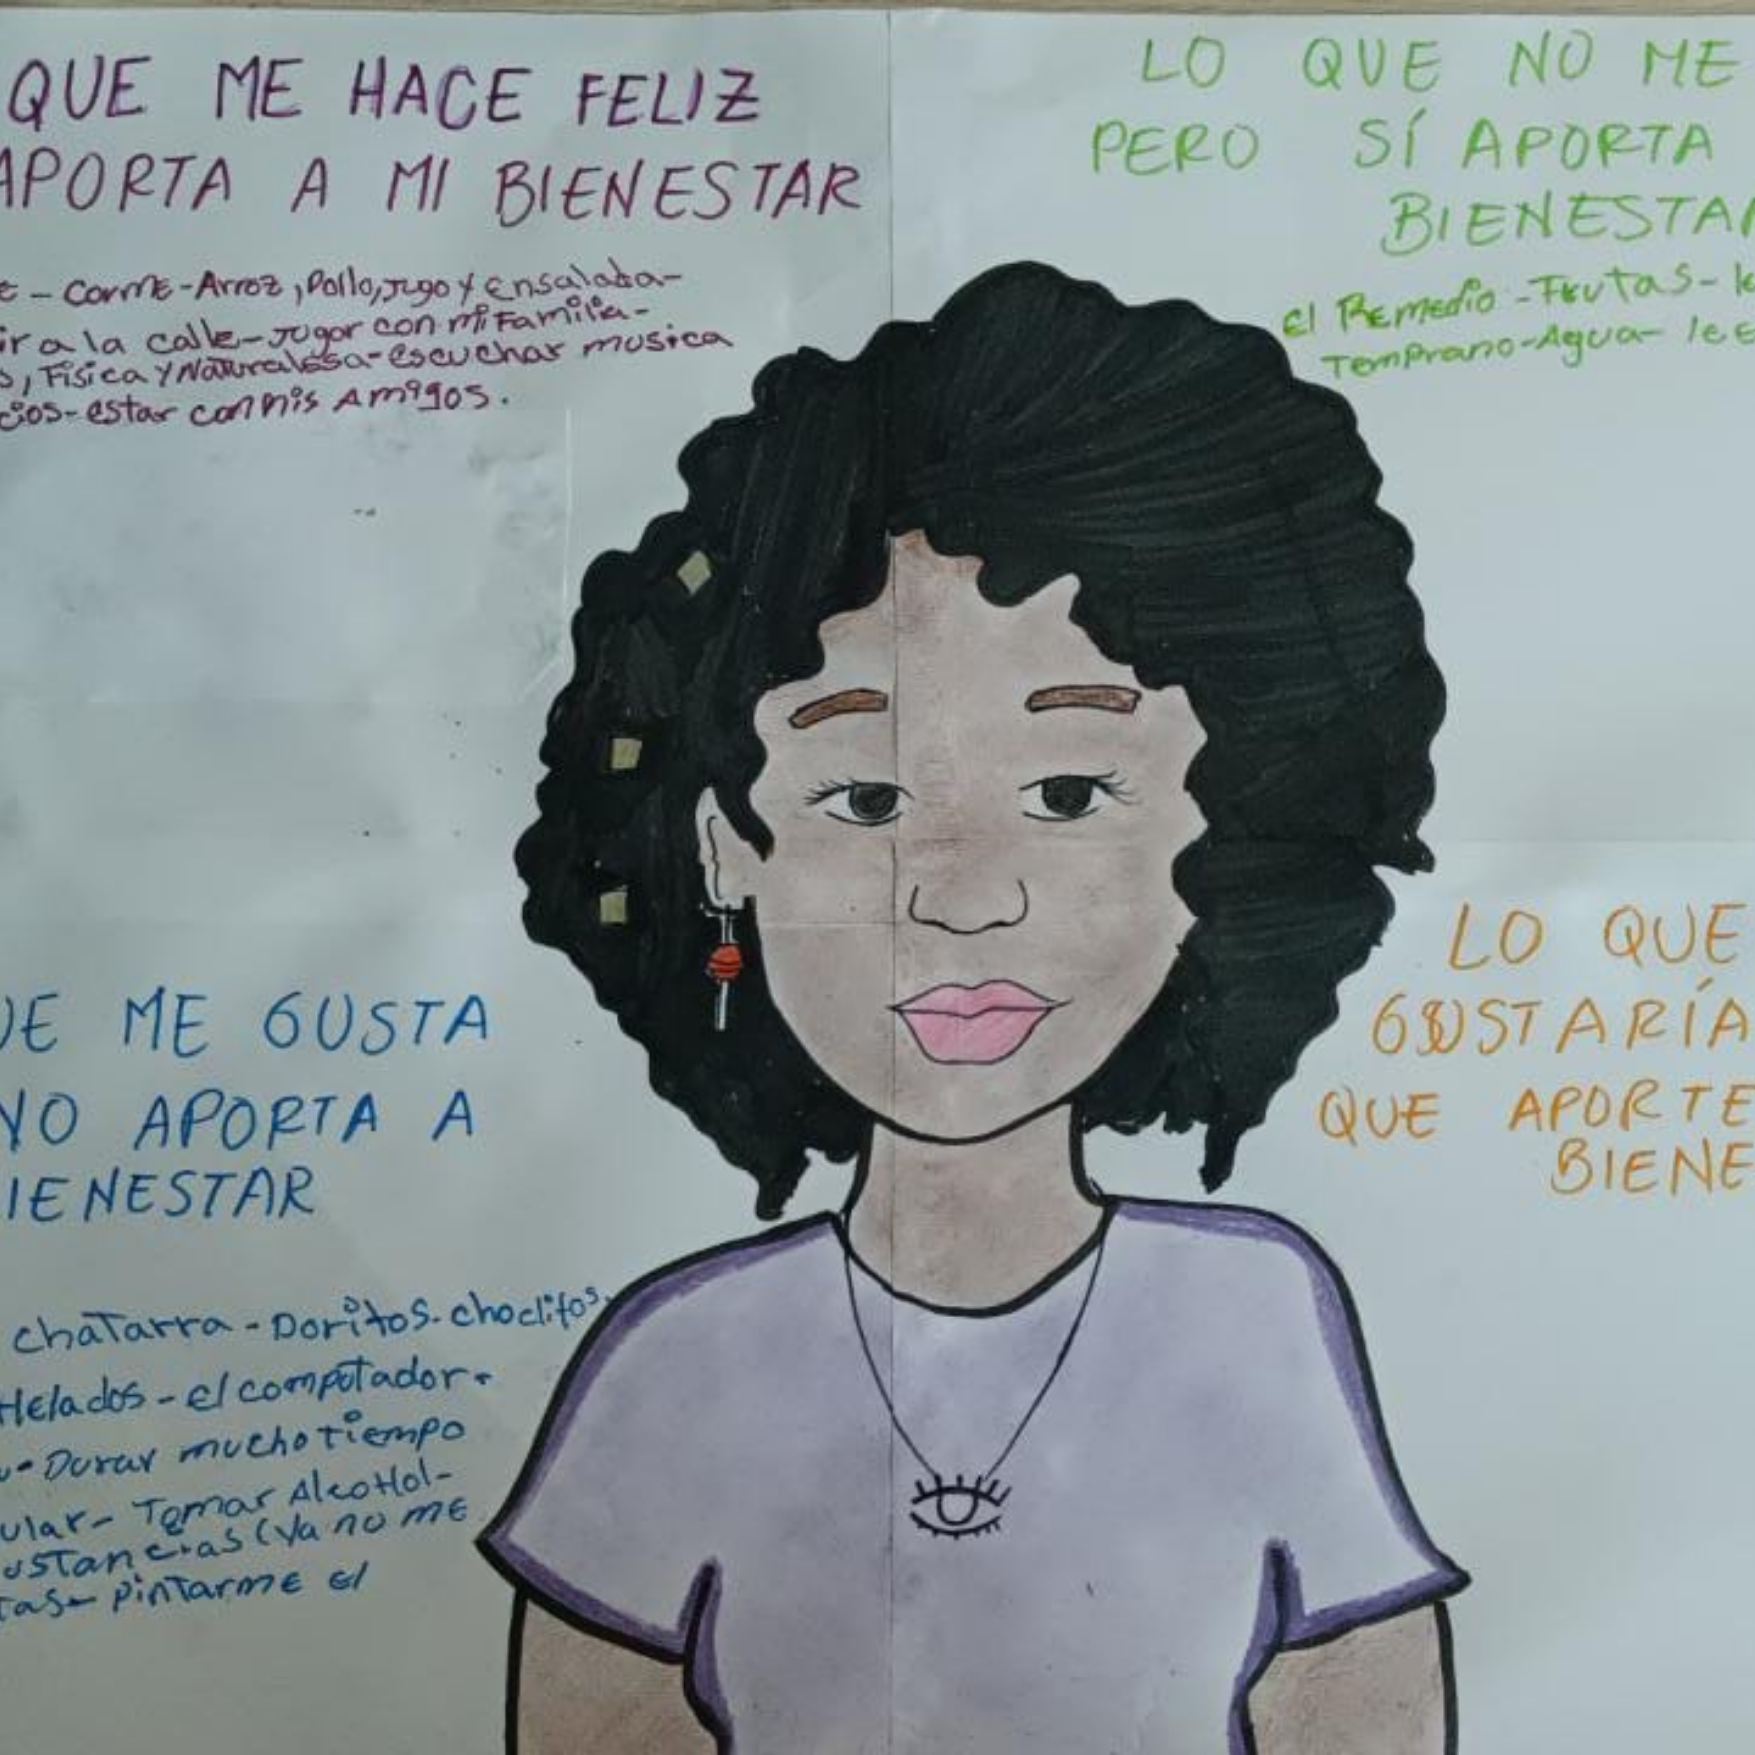 QUE ME HACE FELIZ
APORTA A MI BIENESTAR
- Carne-Arroz, Pollo, Jugo y Ensalada-
ir a la calle-Jugar con mi Familia-
, Física y Naturalesa-escuchar musica
cios-estar con mis Amigos.
LO QUE NO ME
PERO SÍ APORTA
BIENESTAR
el Remedio-Frutas-
Temprano-Agua-lee
UE ME GUSTA
NO APORTA A
IENESTAR
chatarra-Doritos-choclitos,
Helados-el computador-
-Durar mucho tiempo
ular-Tomar Alcohol-
ustancias (ya no me
tas-pintarme el
LO QUE
GUSTARÍA
QUE APORTE
BIENE